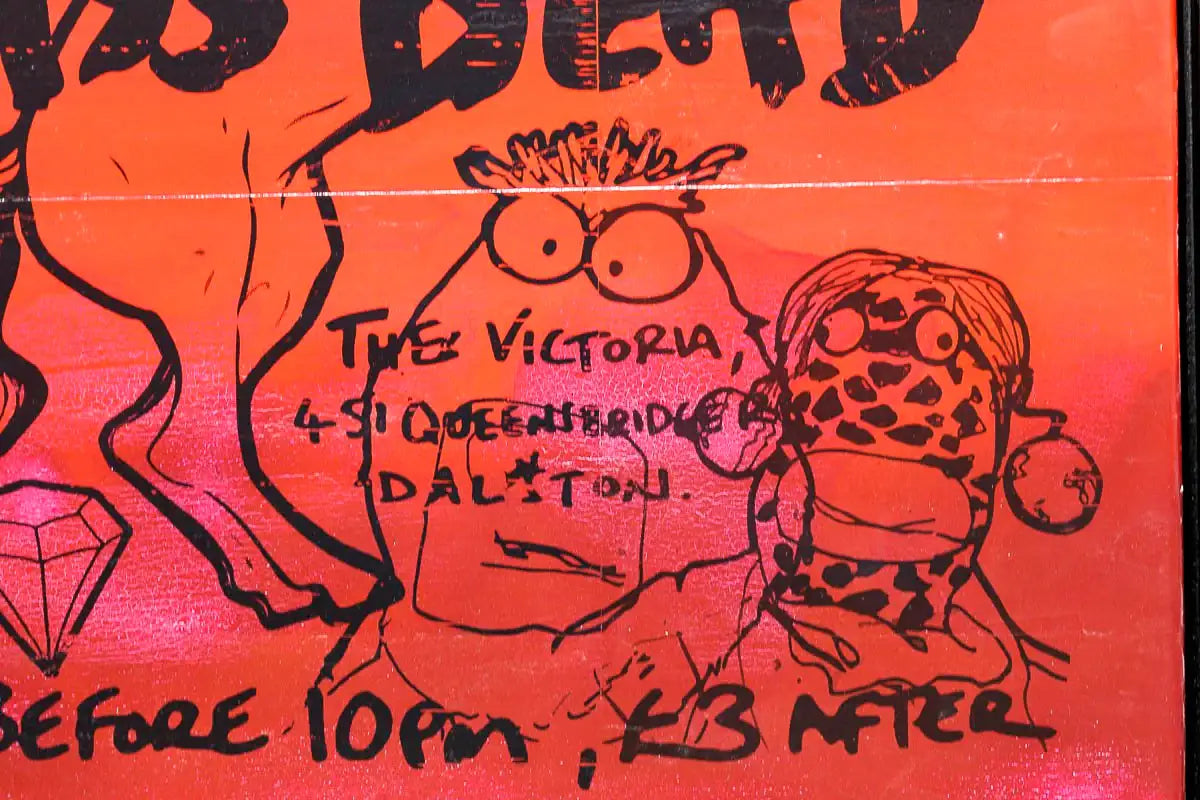 DEAD
THE VICTORIA,
451 QUEENSBRIDGE R
DALSTON.
BEFORE 10PM, £3 AFTER